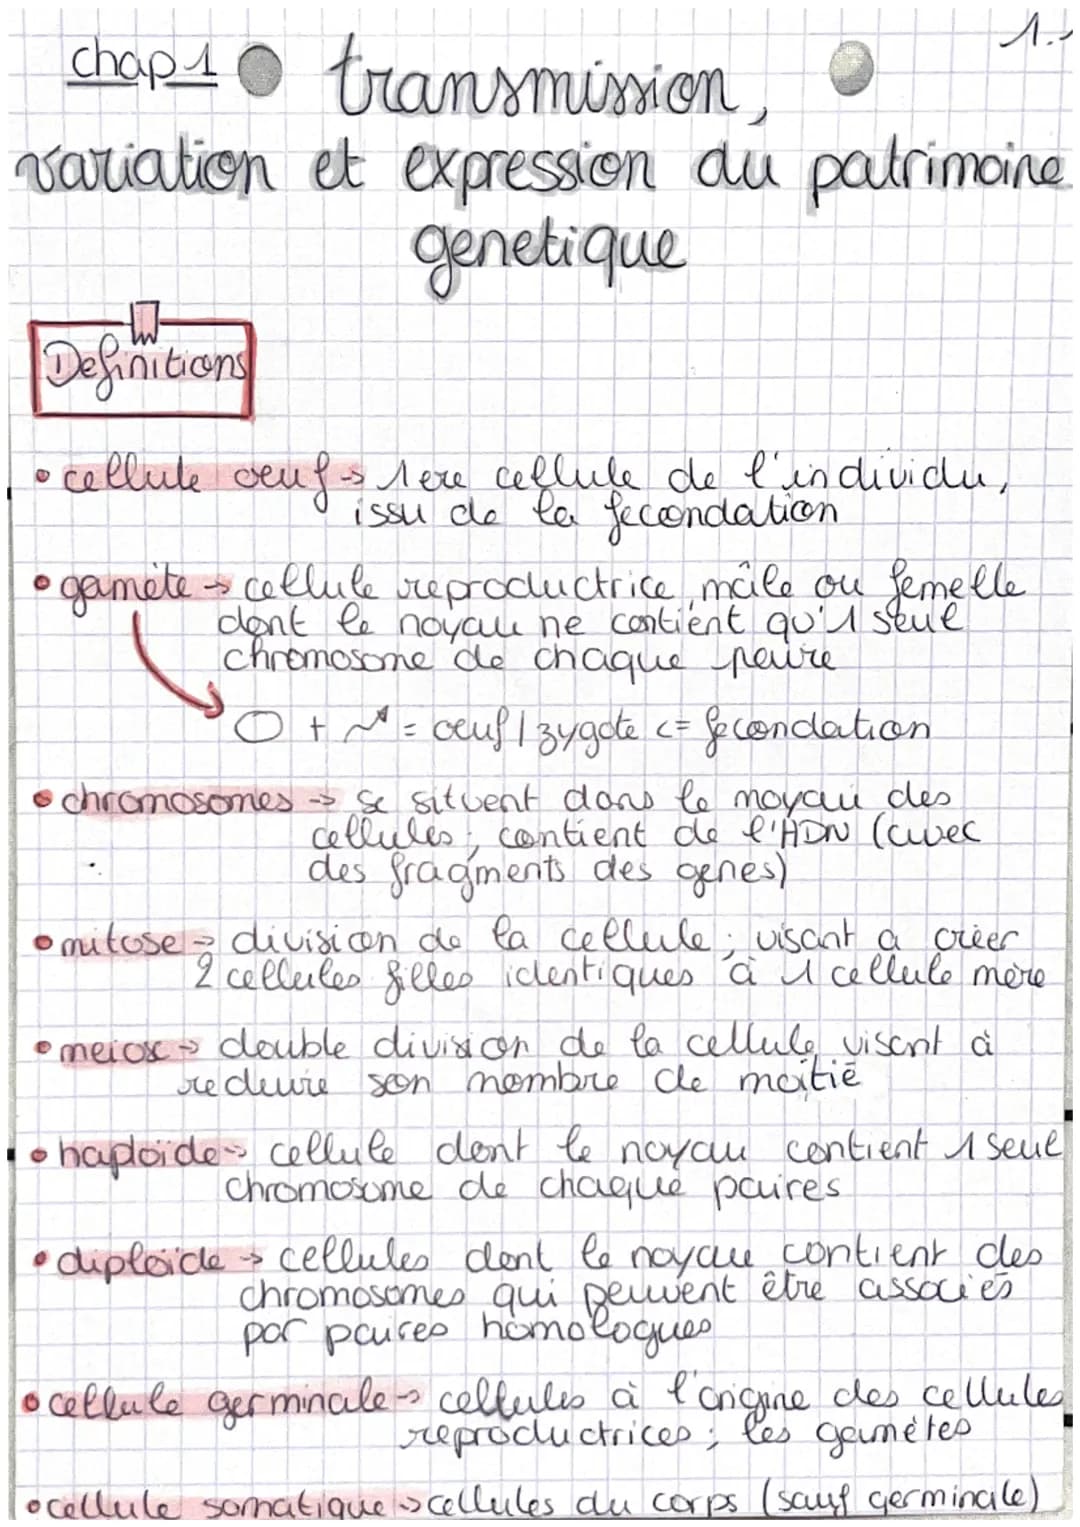 1.
chap 1 transmission,
variation et expression du patrimoine
genetique
Definitions
• cellule oeuf -> 1ere cellule de l'individu,
issu de la fecondation
• gamète -> cellule reproductrice mâle ou femelle
dont le noyau ne contient qu'1 seul
chromosome de chaque paire
+ = oeuf / zygote <= fecondation
• chromosomes -> se situent dans le noyau des
cellules ; contient de l'ADN (avec
des fragments des genes)
• mitose -> division de la cellule ; visant a créer
2 cellules filles identiques à 1 cellule mère
• meiose -> double division de la cellule visant à
reduire son nombre de moitié
• haploïde -> cellule dont le noyau contient 1 seul
chromosome de chaque paires
• diploïde -> cellules dont le noyau contient des
chromosomes qui peuvent être associés
par paires homologues
• cellule germinale -> cellules à l'origine des cellules
reproductrices ; les gamètes
• cellule somatique -> cellules du corps (sauf germinale)